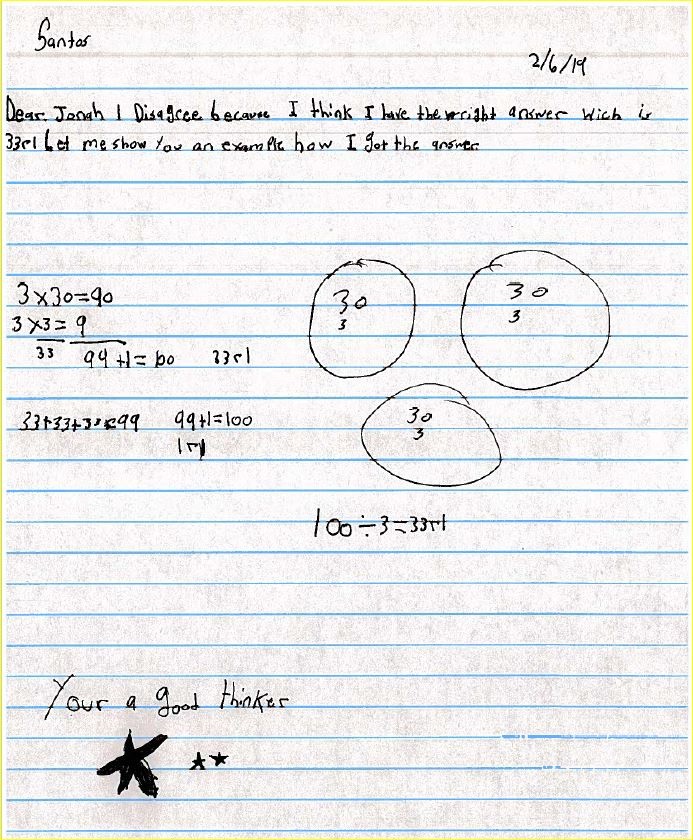 Santos
2/6/19
Dear Jonah I Disagree because I think I have the wright answer wich is
33r1 Let me show you an example how I got the answer
3x30=90
3x3=9
33 99+1=100 33r1
30
3
30
3
33+33+33=99 99+1=100
1r1
30
3
100÷3=33r1
Your a good thinker